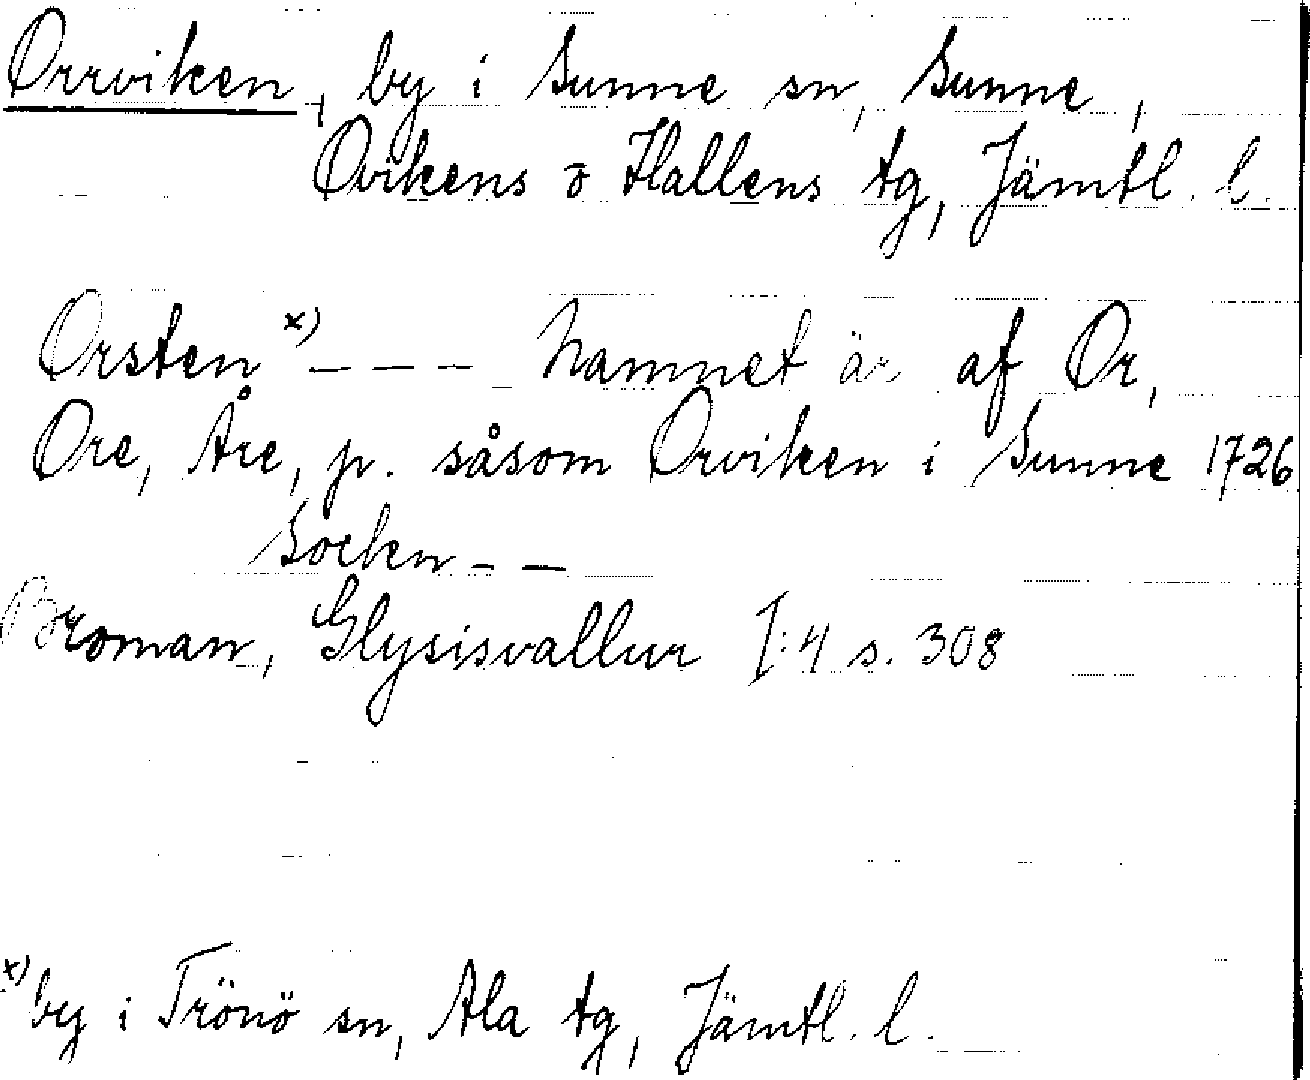 Orrviken, by i Sunne sn, Sunne,
Ovikens o Hallens tg, Jämtl. l.
Orsten x) – – – – Namnet är af Or,
Ore, Åre, p. såsom Orviken i Sunne 1726
Sockn – –
Broman, Glysisvallur I:4 s. 308
x) by i Trönö sn, Ala tg, Jämtl. l.